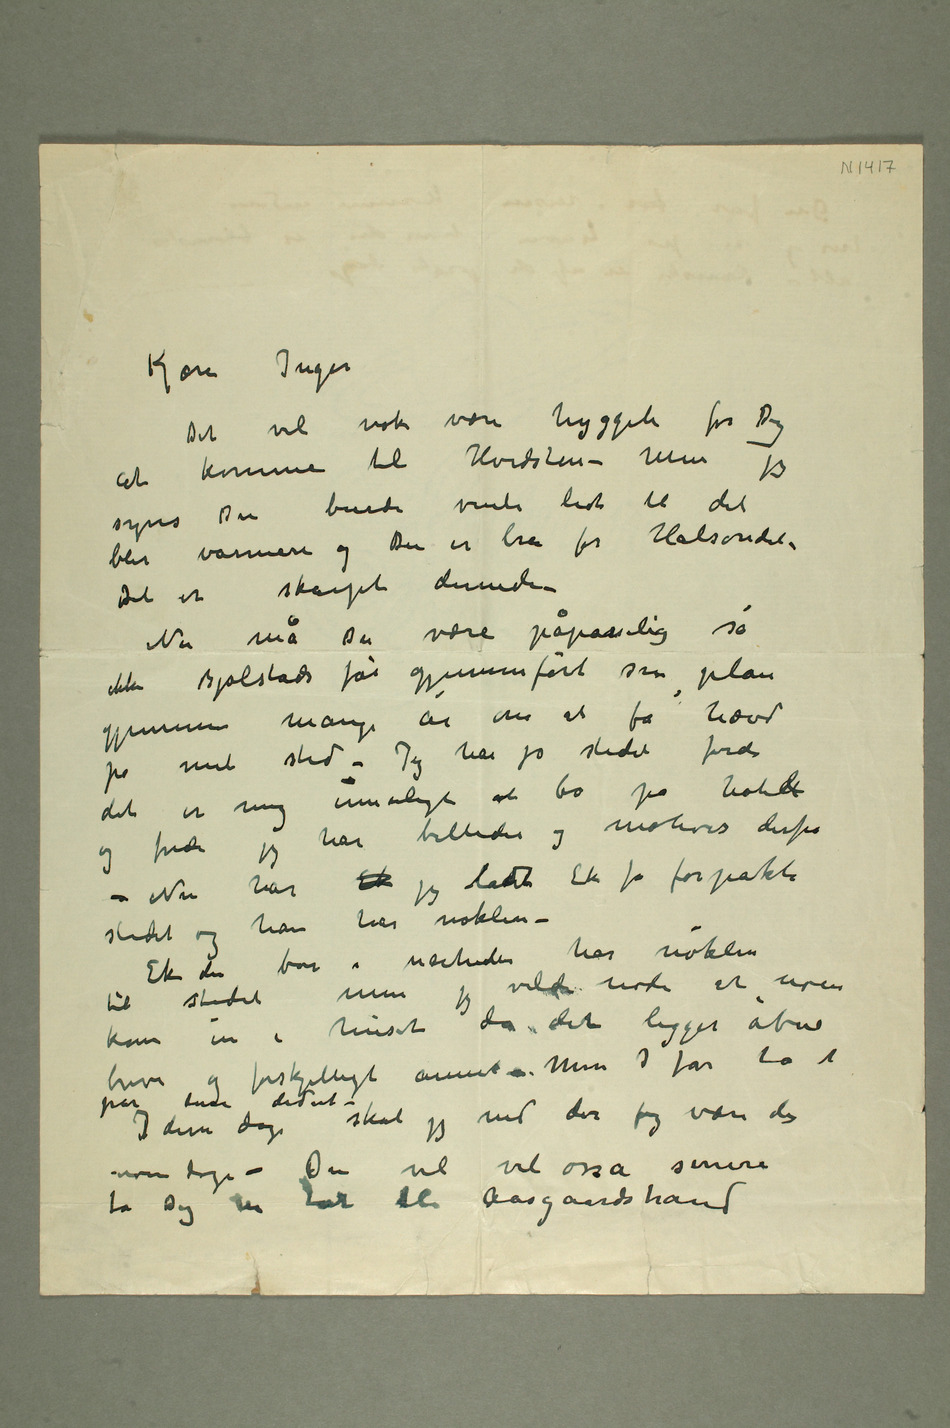 N 1417
Kjære Inger
Det vil nok være hyggeli for Dig
at komme til Hvidsten – men jeg
synes Du burde vente lidt til det
blir varmere og Du er bra for Halsondet.
Det er skarpt dernede –
Nu må Du være påpasselig så
ikke Bjølstads får gjennemført sin plan
gjennem mange år om at få hævd
på mit sted – Jeg har jo stedet fordi
det er mig umuligt at bo på hotel
og fordi jeg har billeder og motiver derfra
– Nu har Ek jeg ladt Ek få forpakte
stedet og han har nøklen –
Ek der bor i nærheden har nøklen
til stedet men jeg vilde nødi at noen
kom in i huset da det ligger åbne
breve og forskjelligt annet – Men I får ta et
par ture didut –
I disse dage skal jeg ned der og være der
noen dage – Du vil vel osså senere
ta Dig en tur til Aasgaardstrand